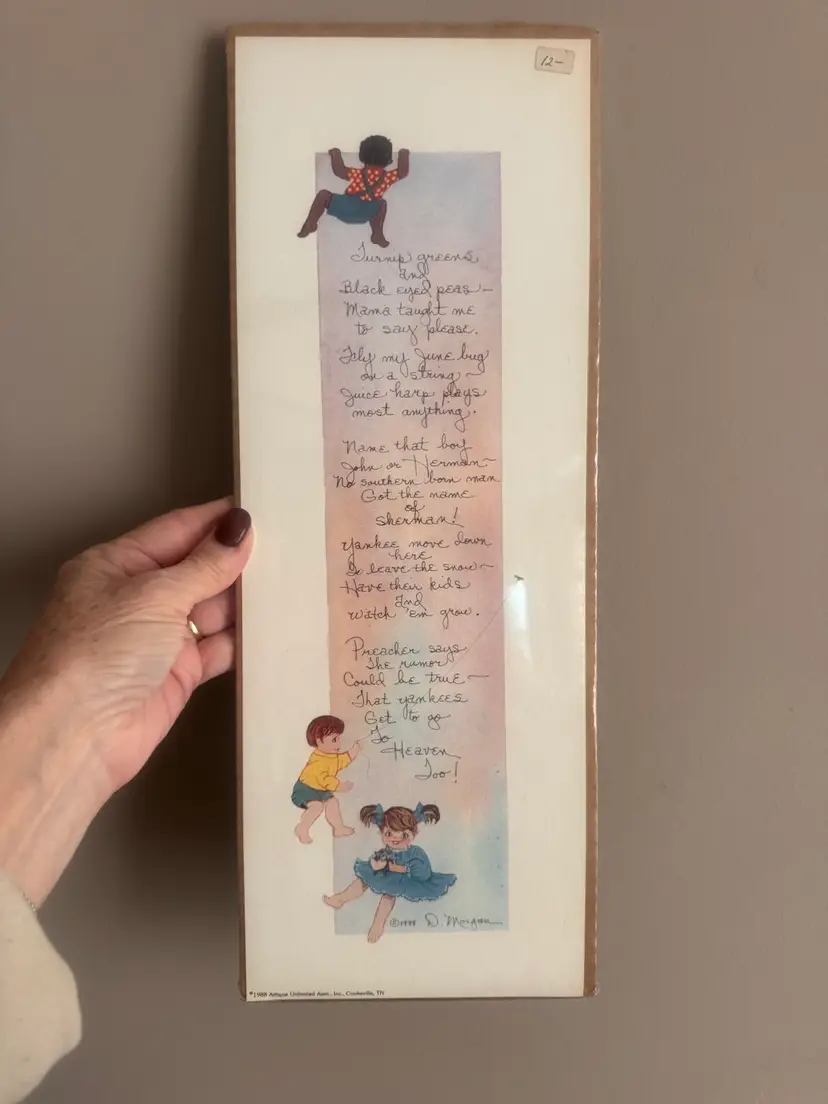 12—
Turnip greens
and
Black eyed peas—
Mama taught me
to say please.
Fly my June bug
on a string~
Juice harp plays
most anything.
Name that boy
John or Herman~
No southern born man
Got the name
of
sherman!
Yankee move down
here
To leave the snow~
Have their kids
and
watch 'em grow.
Preacher says
The rumor
Could be true~
That yankees
Get to go
To
Heaven
Too!
©1988 D. Morgan
©1988 Antique Unlimited Assn., Inc., Cookeville, TN